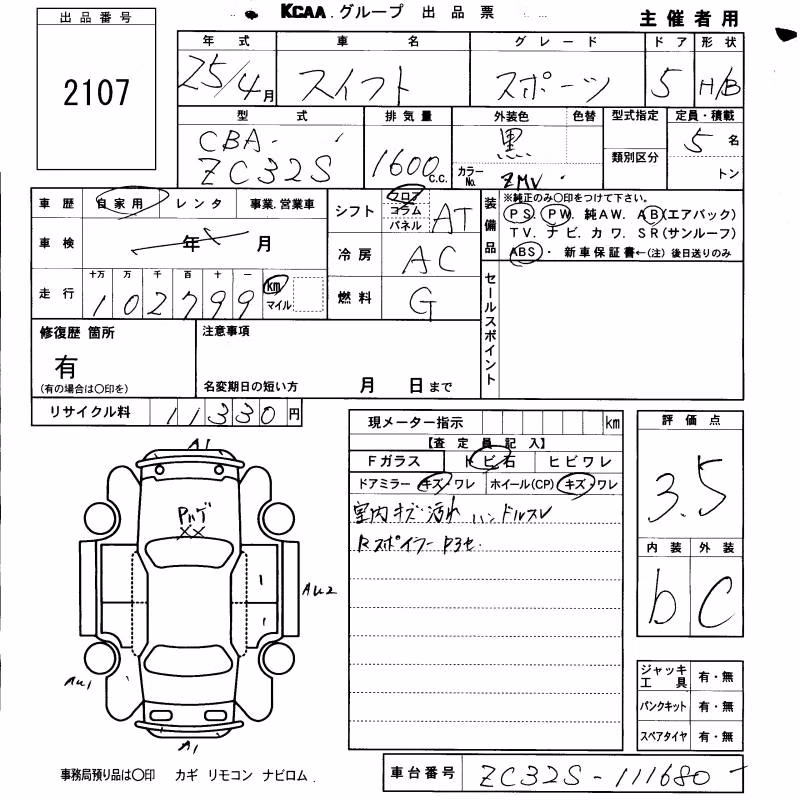 出品番号
2107
KCAA グループ 出品票
主催者用
年式 車名 グレード ドア 形状
25/4月 スイフト スポーツ 5 H/B
型式 排気量 外装色 色替 型式指定 定員・積載
CBA-
ZC32S
1600 c.c.
黒
カラーNo. ZMV
類別区分
5名
トン
車歴 自家用 レンタ 事業.営業車
車検 年 月
走行 十万 万 千 百 十 一
102799 km マイル
シフト フロア コラム パネル AT
冷房 AC
燃料 G
装備品
※純正のみ○印をつけて下さい。
PS. PW. 純AW. AB(エアバック)
TV. ナビ. カワ. SR(サンルーフ)
ABS・ 新車保証書←(注)後日送りのみ
セールスポイント
修復歴 箇所
有
(有の場合は○印を)
注意事項
名変期日の短い方 月 日まで
リサイクル料 11330円
現メーター指示 km
【査定員記入】
Fガラス トビ石 ヒビワレ
ドアミラー キズ・ワレ ホイール(CP) キズ・ワレ
室内キズ・汚れ ハンドルスレ
Rスポイラー
評価点
3.5
内装 外装
b C
ジャッキ工具 有・無
パンクキット 有・無
スペアタイヤ 有・無
A1
XX
AU2
AU1
A1
事務局預り品は○印 カギ リモコン ナビロム.
車台番号 ZC32S-111680